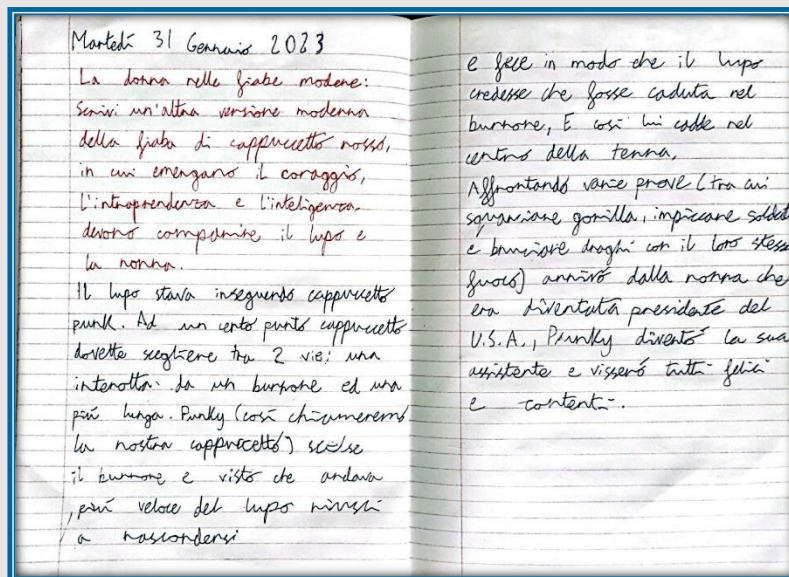 Martedì 31 Gennaio 2023
La donna nelle fiabe modene:
Scrivi un'altra versione moderna
della fiaba di cappuccetto rosso,
in cui emergano il coraggio,
l'intraprendenza e l'inteligenza.
devono comparire il lupo e
la nonna.
Il lupo stava inseguendo cappuccetto
punk. Ad un certo punto cappuccetto
dovette scegliere tra 2 vie: una
interotta da un burrone ed una
più lunga. Punky (così chiameremo
la nostra cappuccetto) scelse
il burrone e visto che andava
più veloce del lupo riuscì
a nascondersi
e fece in modo che il lupo
credesse che fosse caduta nel
burrone, E così lui cadde nel
centro della terra.
Affrontando varie prove (tra cui
squarciare gorilla, impiccare soldati
e bruciare draghi con il loro stesso
fuoco) arrivò dalla nonna che
era diventata presidente del
U.S.A., Punky diventò la sua
assistente e vissero tutti felici
e contenti.